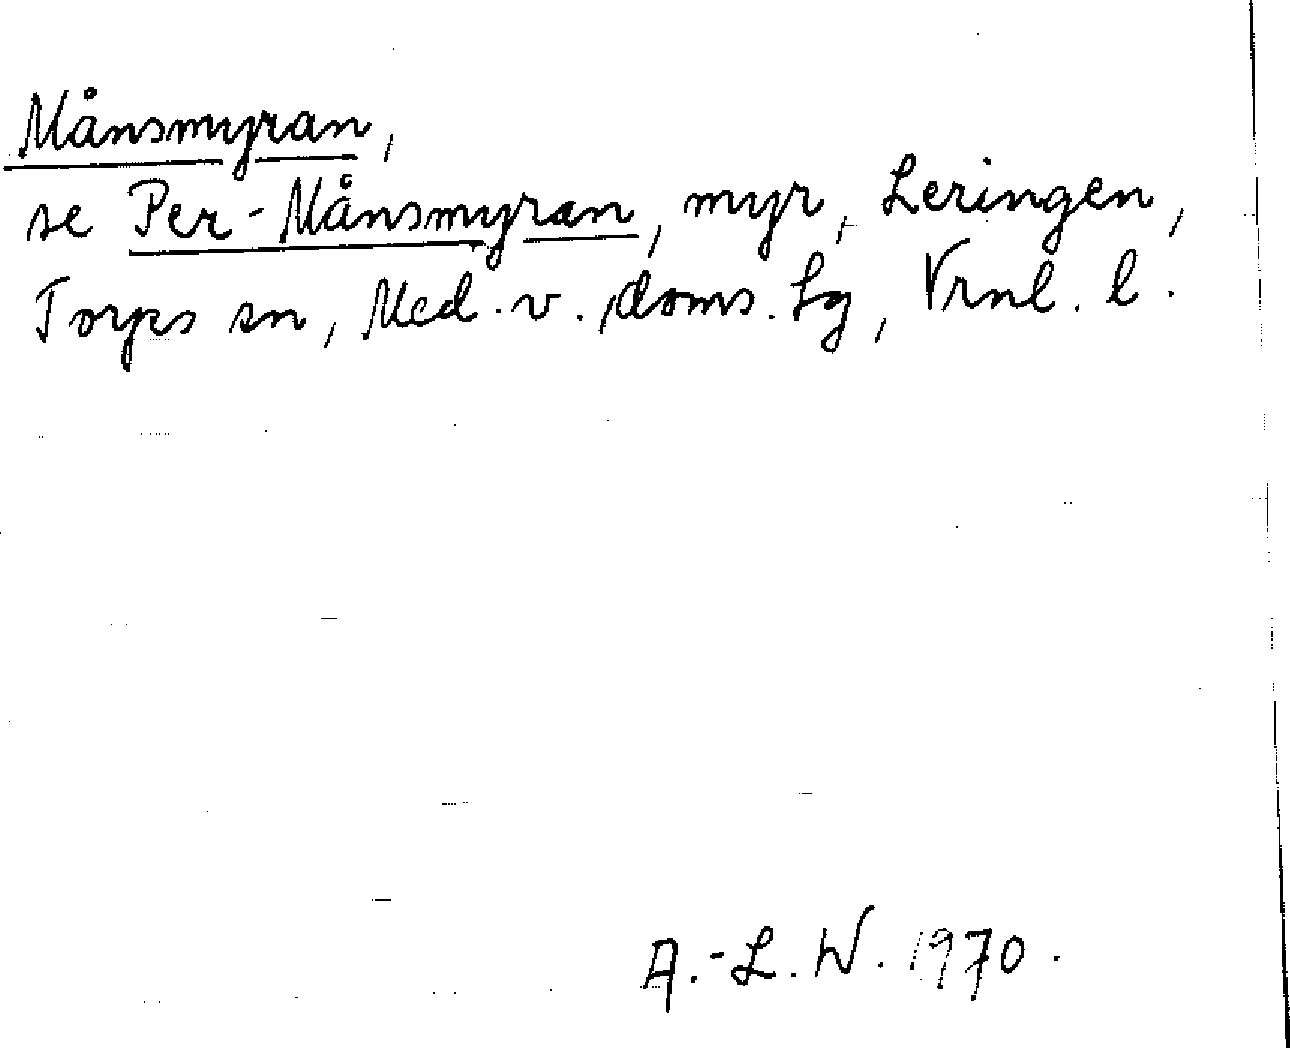 Månsmyran,
se Per-Månsmyran, myr, Leringen,
Torps sn, Med. v., doms. sg, Vrnl. l.
A.-L. W. 1970.